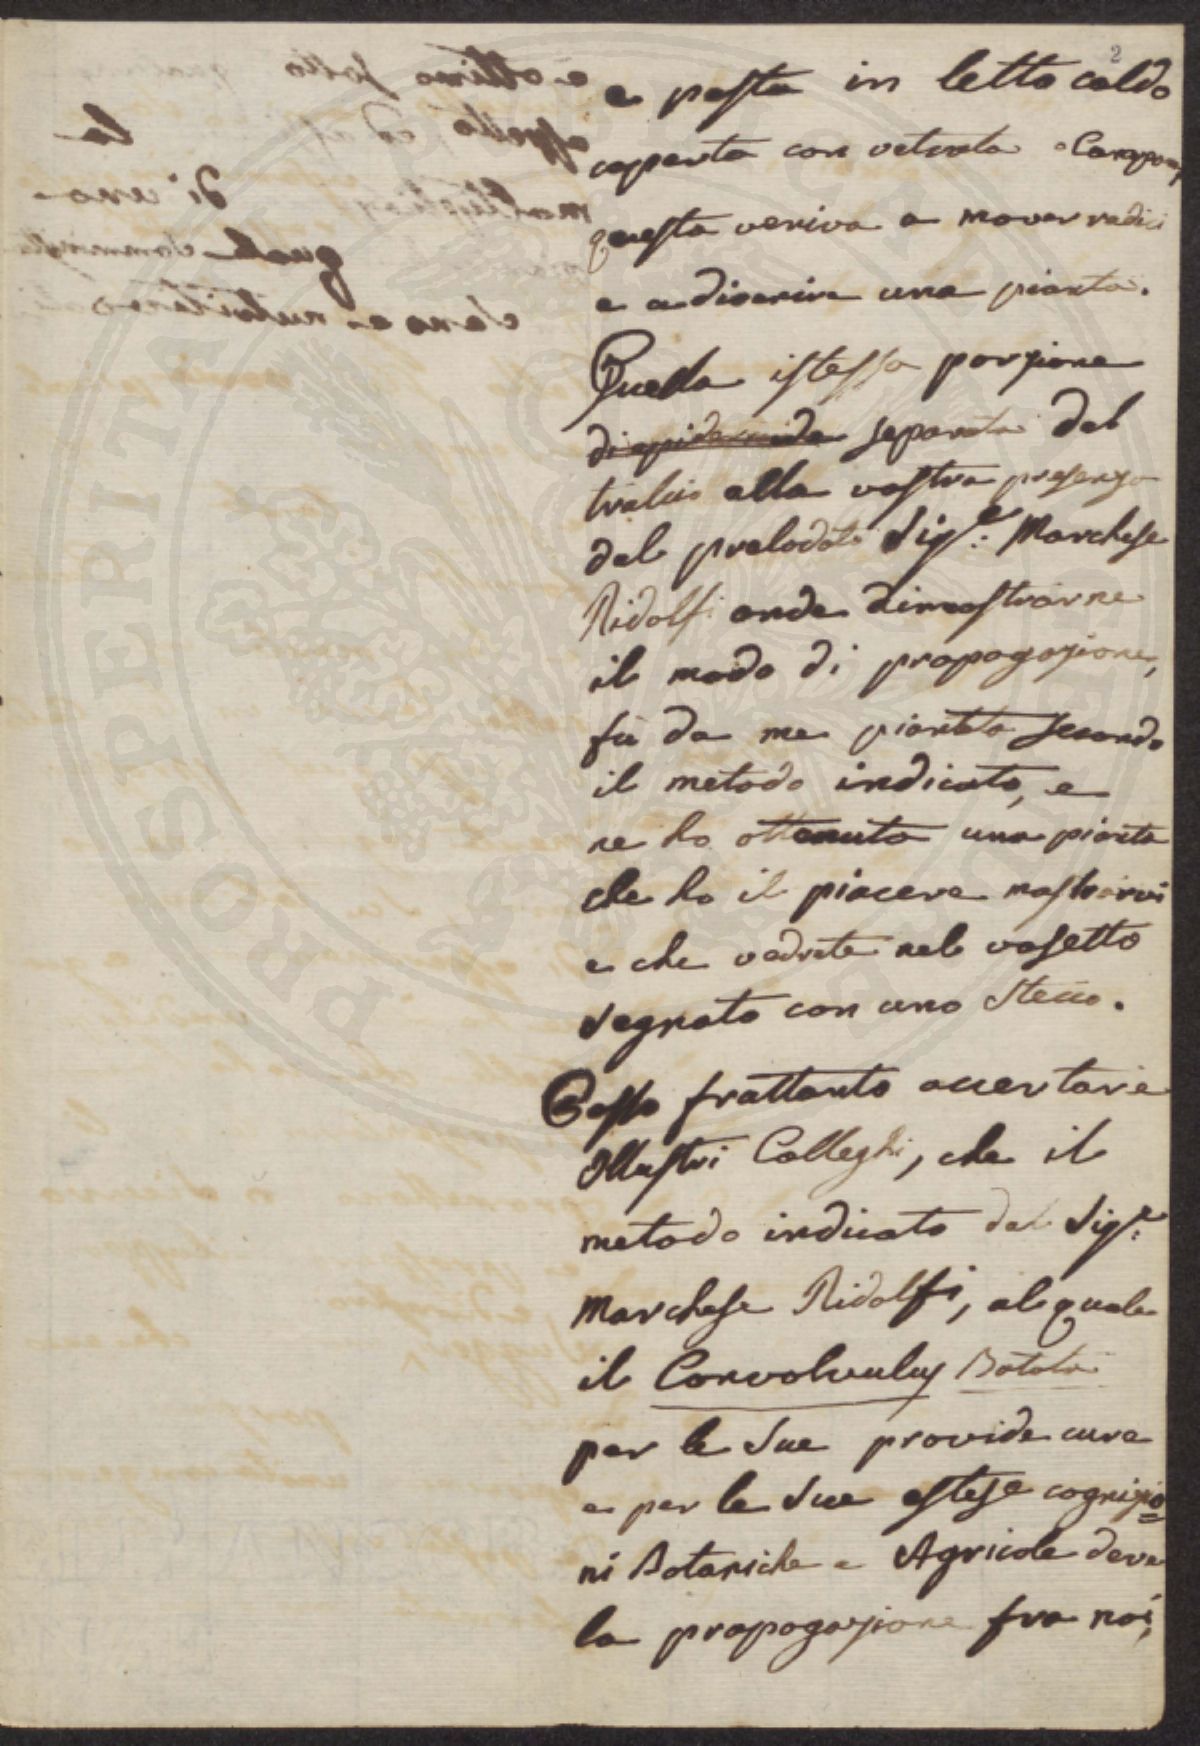 2
e posta in letto caldo
coperta con vetrata o Campana,
questa veniva a mover radici
e a divenire una pianta.
Quella istessa porzione
di epidermide separata dal
tralcio alla vostra presenza
dal prelodato Sigr: Marchese
Ridolfi onde dimostrarne
il modo di propagazione,
fù da me piantata secondo
il metodo indicato, e
ne ho ottenuto una pianta
che ho il piacere mostrarvi
e che vedrete nel vasetto
segnato con uno Stecco.
Posso frattanto accertarvi
Illustri Colleghi, che il
metodo indicato dal Sigr:
Marchese Ridolfi, al quale
il Convolvulus Batata
per le sue provide cure
e per le sue estese cognizio=
ni Botaniche e Agricole deve
la propagazione fra noi,
PROSPERITATI